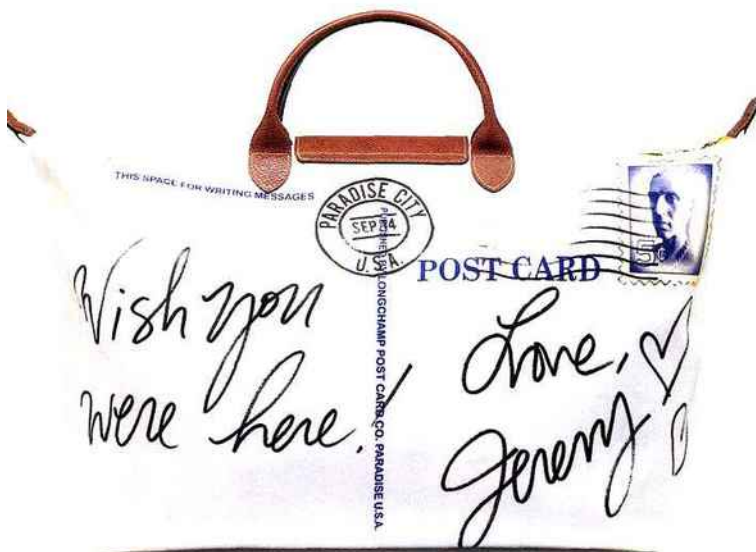 THIS SPACE FOR WRITING MESSAGES
PARADISE CITY
SEP 14
U.S.A.
PUBLISHED BY LONGCHAMP POST CARD CO. PARADISE U.S.A.
POST CARD
5c
Wish you
were here!
Love,
Jeremy